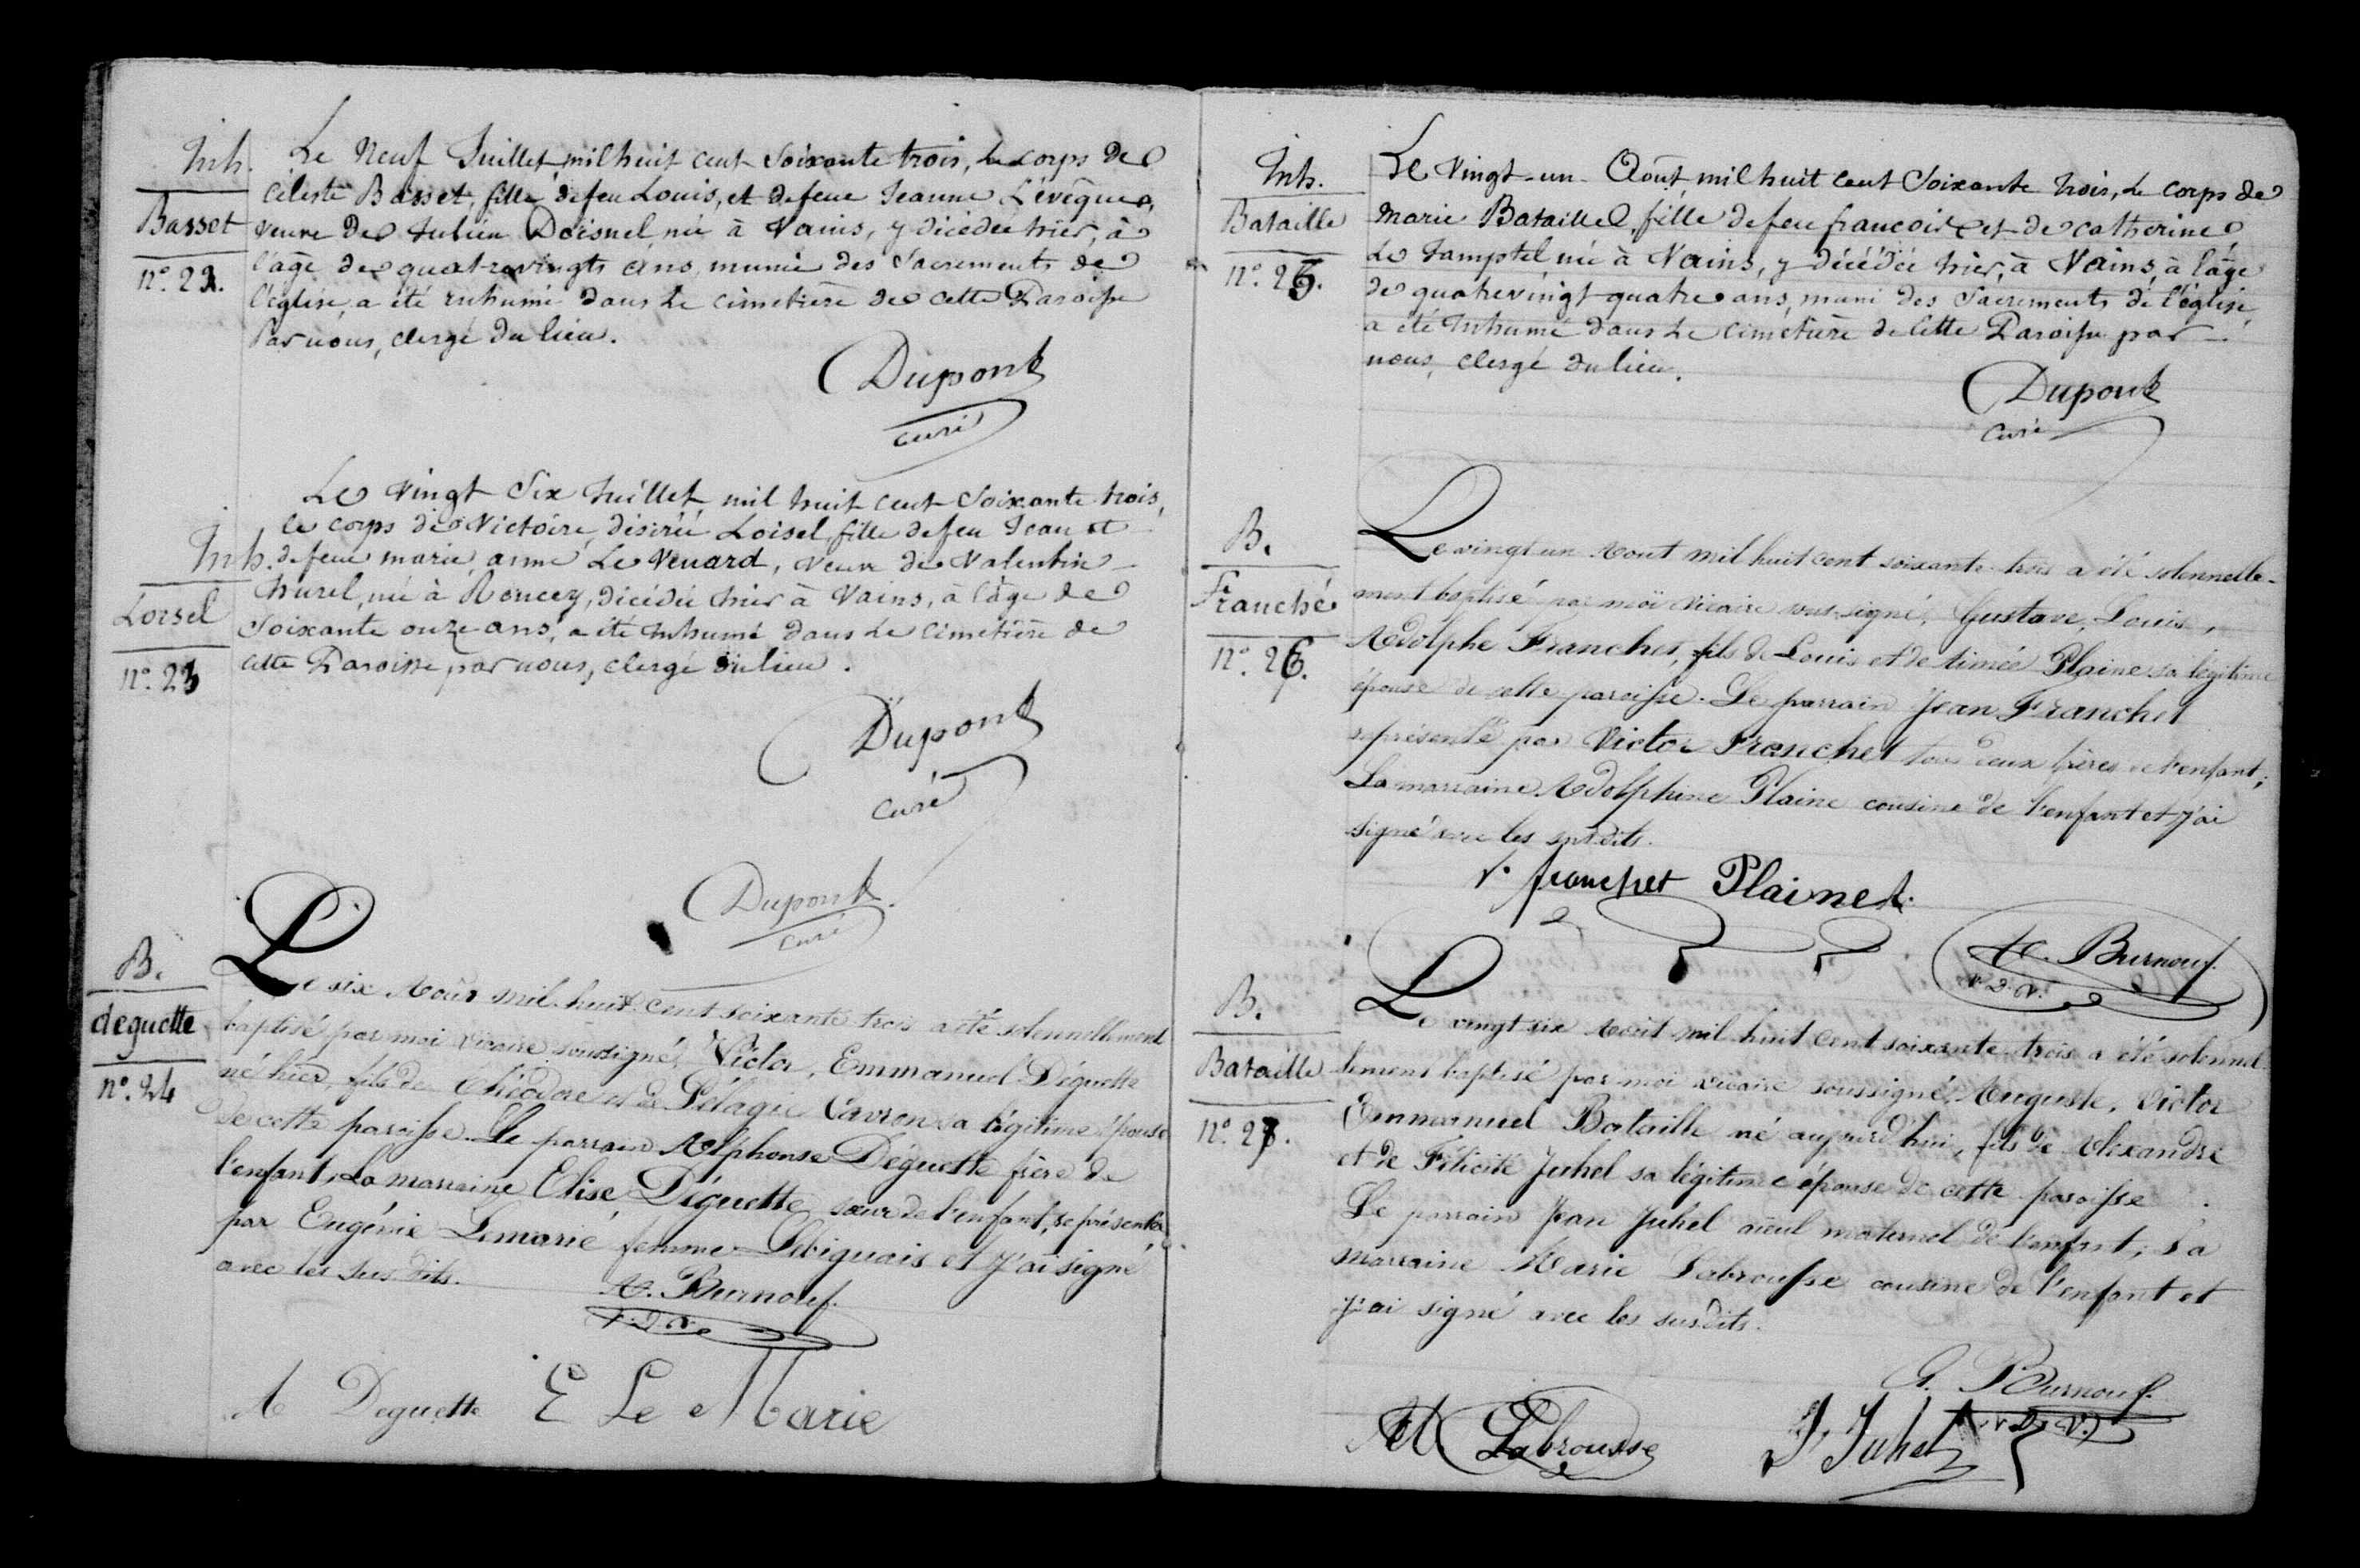 Inh.
Basset
n°. 22.
Le Neuf Juillet, mil huit cent Soixante trois, le corps de
céleste Basset, fille de feu Louis, et de feue Jeanne Lévêque,
veuve de Julien Doisnel, née à Vains, y décédée hier, à
l'âge de quatrevingts ans, munie des Sacrements de
l'église, a été inhumé dans le cimetière de cette Paroisse
Par nous, clergé du lieu.
Dupont
curé
Inh.
Loisel
n°. 23
Le Vingt Six Juillet, mil huit cent Soixante trois,
le corps de Victoire, désirée Loisel, fille de feu Jean et
de feue marie, anne Le Venard, veuve de Valentin
hurel, née à Roncey, décédée hier à Vains, à l'âge de
Soixante onze ans, a été inhumé dans le Cimetière de
cette Paroisse, par nous, clergé du lieu.
Dupont
Curé
Dupont
Curé
B.
deguette
n°. 24
Le six Août mil huit cent soixante trois a été solennellement
baptisé par moi vicaire soussigné, Victor, Emmanuel Déguette
né hier, fils de Théodore et de Pélagie Carron sa légitime épouse
de cette paroisse. Le parrain Alphonse Déguette frère de
l'enfant, La marraine Elise Déguette sœur de l'enfant, représentée
par Eugénie Lemarié femme et j'ai signé
avec les sus dits.
A. Burnouf.
v. d. V.
A Deguette E Le Marie
Inh.
Bataille
n°. 25.
Le Vingt-un Août, mil huit cent Soixante trois, le corps de
Marie Bataille, fille de feu françois et de catherine
Le née à Vains, y décédée hier, à Vains, à l'âge
de quatrevingt quatre ans, muni des Sacrements de l'église,
a été inhumé dans le cimetière de cette Paroisse par
nous, clergé du lieu.
Dupont
Curé
B.
Franché
n°. 26.
Le vingt un Aout mil huit cent soixante trois a été solennelle-
ment baptisé par moi vicaire sous-signé, Gustave, Louis,
Adolphe Franchet, fils de Louis et de Aimée Plaine sa légitime
épouse de cette paroisse. Le parrain Jean Franchet
représenté par Victor Franchet tous deux frères de l'enfant;
La marraine Adolphine Plaine cousine de l'enfant et j'ai
signé avec les susdits.
V. franchet Plaine A.
A. Burnouf.
v. d. V.
B.
Bataille
n°. 27.
Le vingt six Août mil huit cent soixante trois a été solennel-
lement baptisé par moi vicaire soussigné, Auguste, Victor
Emmanuel Bataille né aujourd'hui, fils de Alexandre
et de Félicité Juhel sa légitime épouse de cette paroisse.
Le parrain Jean Juhel aïeul maternel de l'enfant; La
marraine Marie Labrousse cousine de l'enfant et
j'ai signé avec les susdits.
A. Burnouf.
v. d. V.
M Labrousse J. Juhel